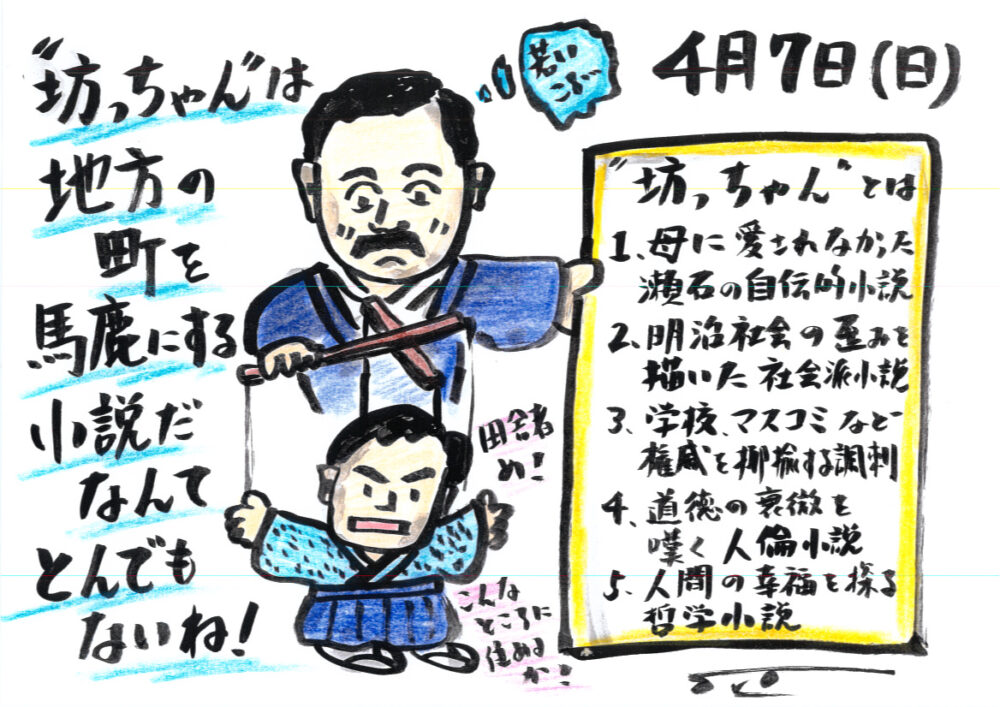 "坊っちゃん"は
地方の
町を
馬鹿にする
小説だ
なんて
とんでも
ないね!
若い
こぶ
4月7日(日)
"坊っちゃん"とは
1、母に愛されなかった
瀬石の自伝的小説
2、明治社会の歪みを
描いた社会派小説
3、学校、マスコミなど
権威を揶揄する諷刺
4、道徳の衰微を
嘆く人倫小説
5、人間の幸福を探る
哲学小説
田舎者
め!
こんな
ところに
住める
か!